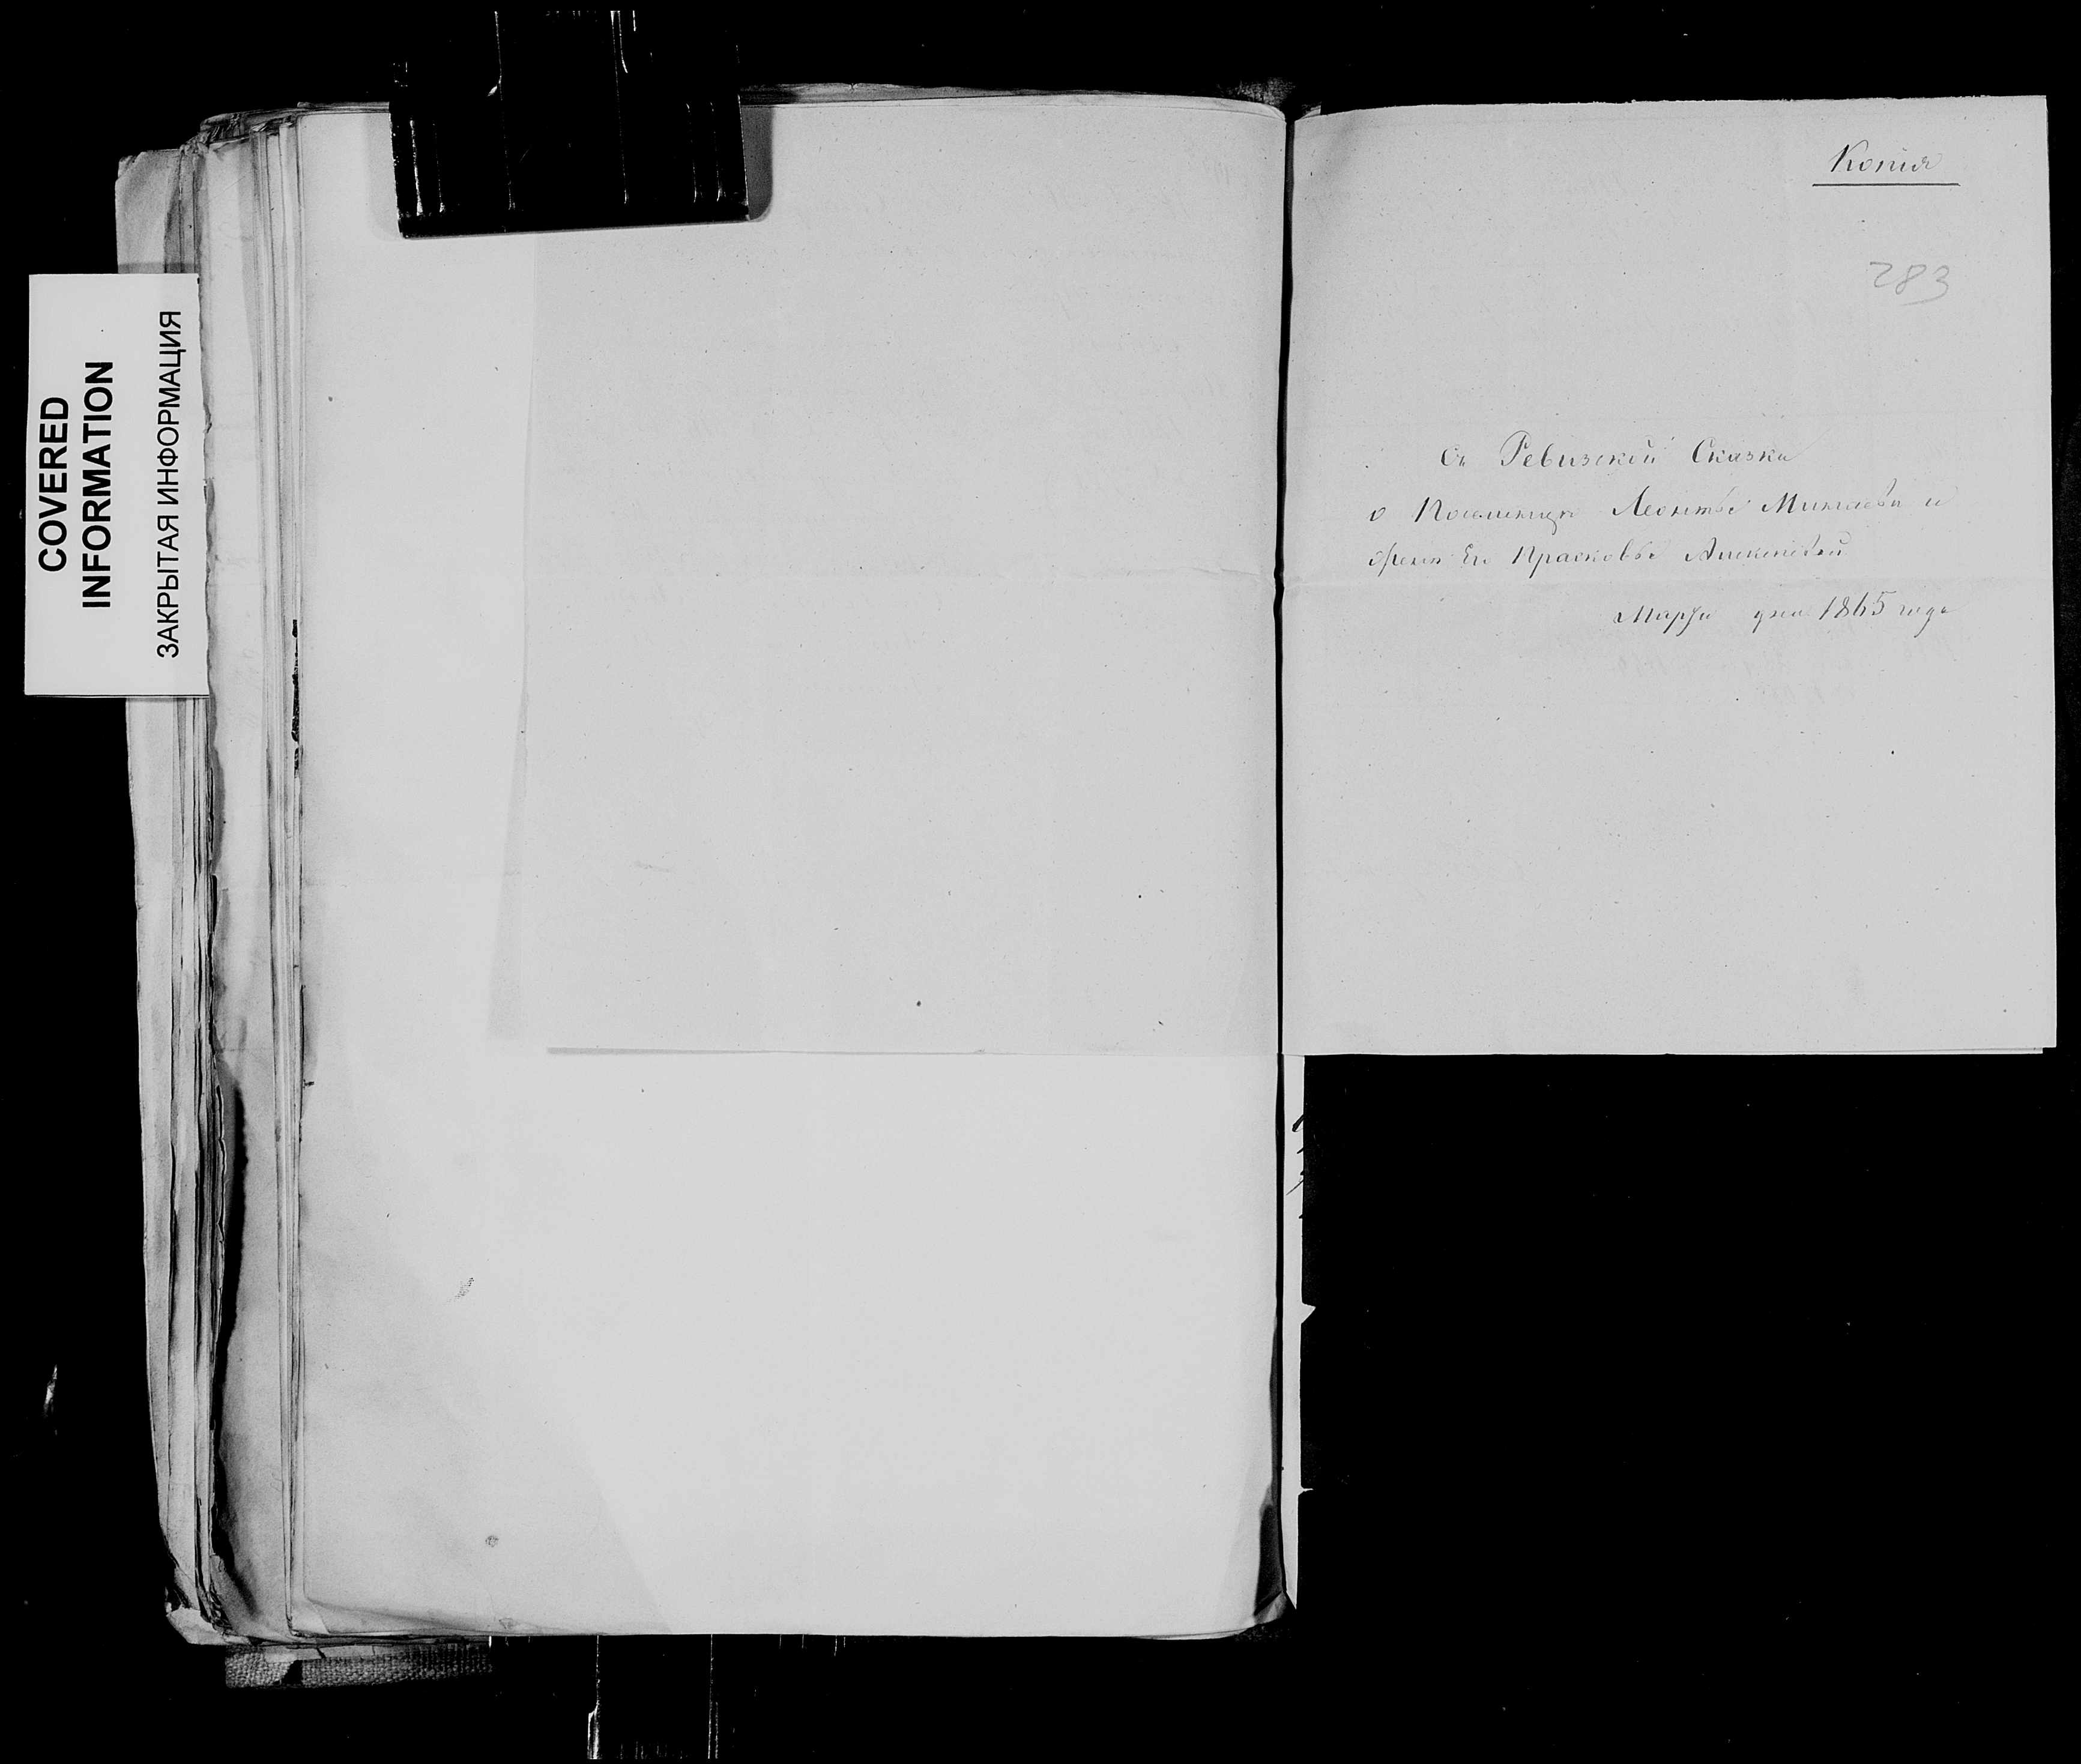 COVERED
INFORMATION
ЗАКРЫТАЯ ИНФОРМАЦИЯ
Копія
283
Съ Ревизской Сказки
о Поселенцѣ Леонтьѣ Минаевѣ и
женѣ Его Прасковьѣ Алексѣевой
Марта дня 1865 года